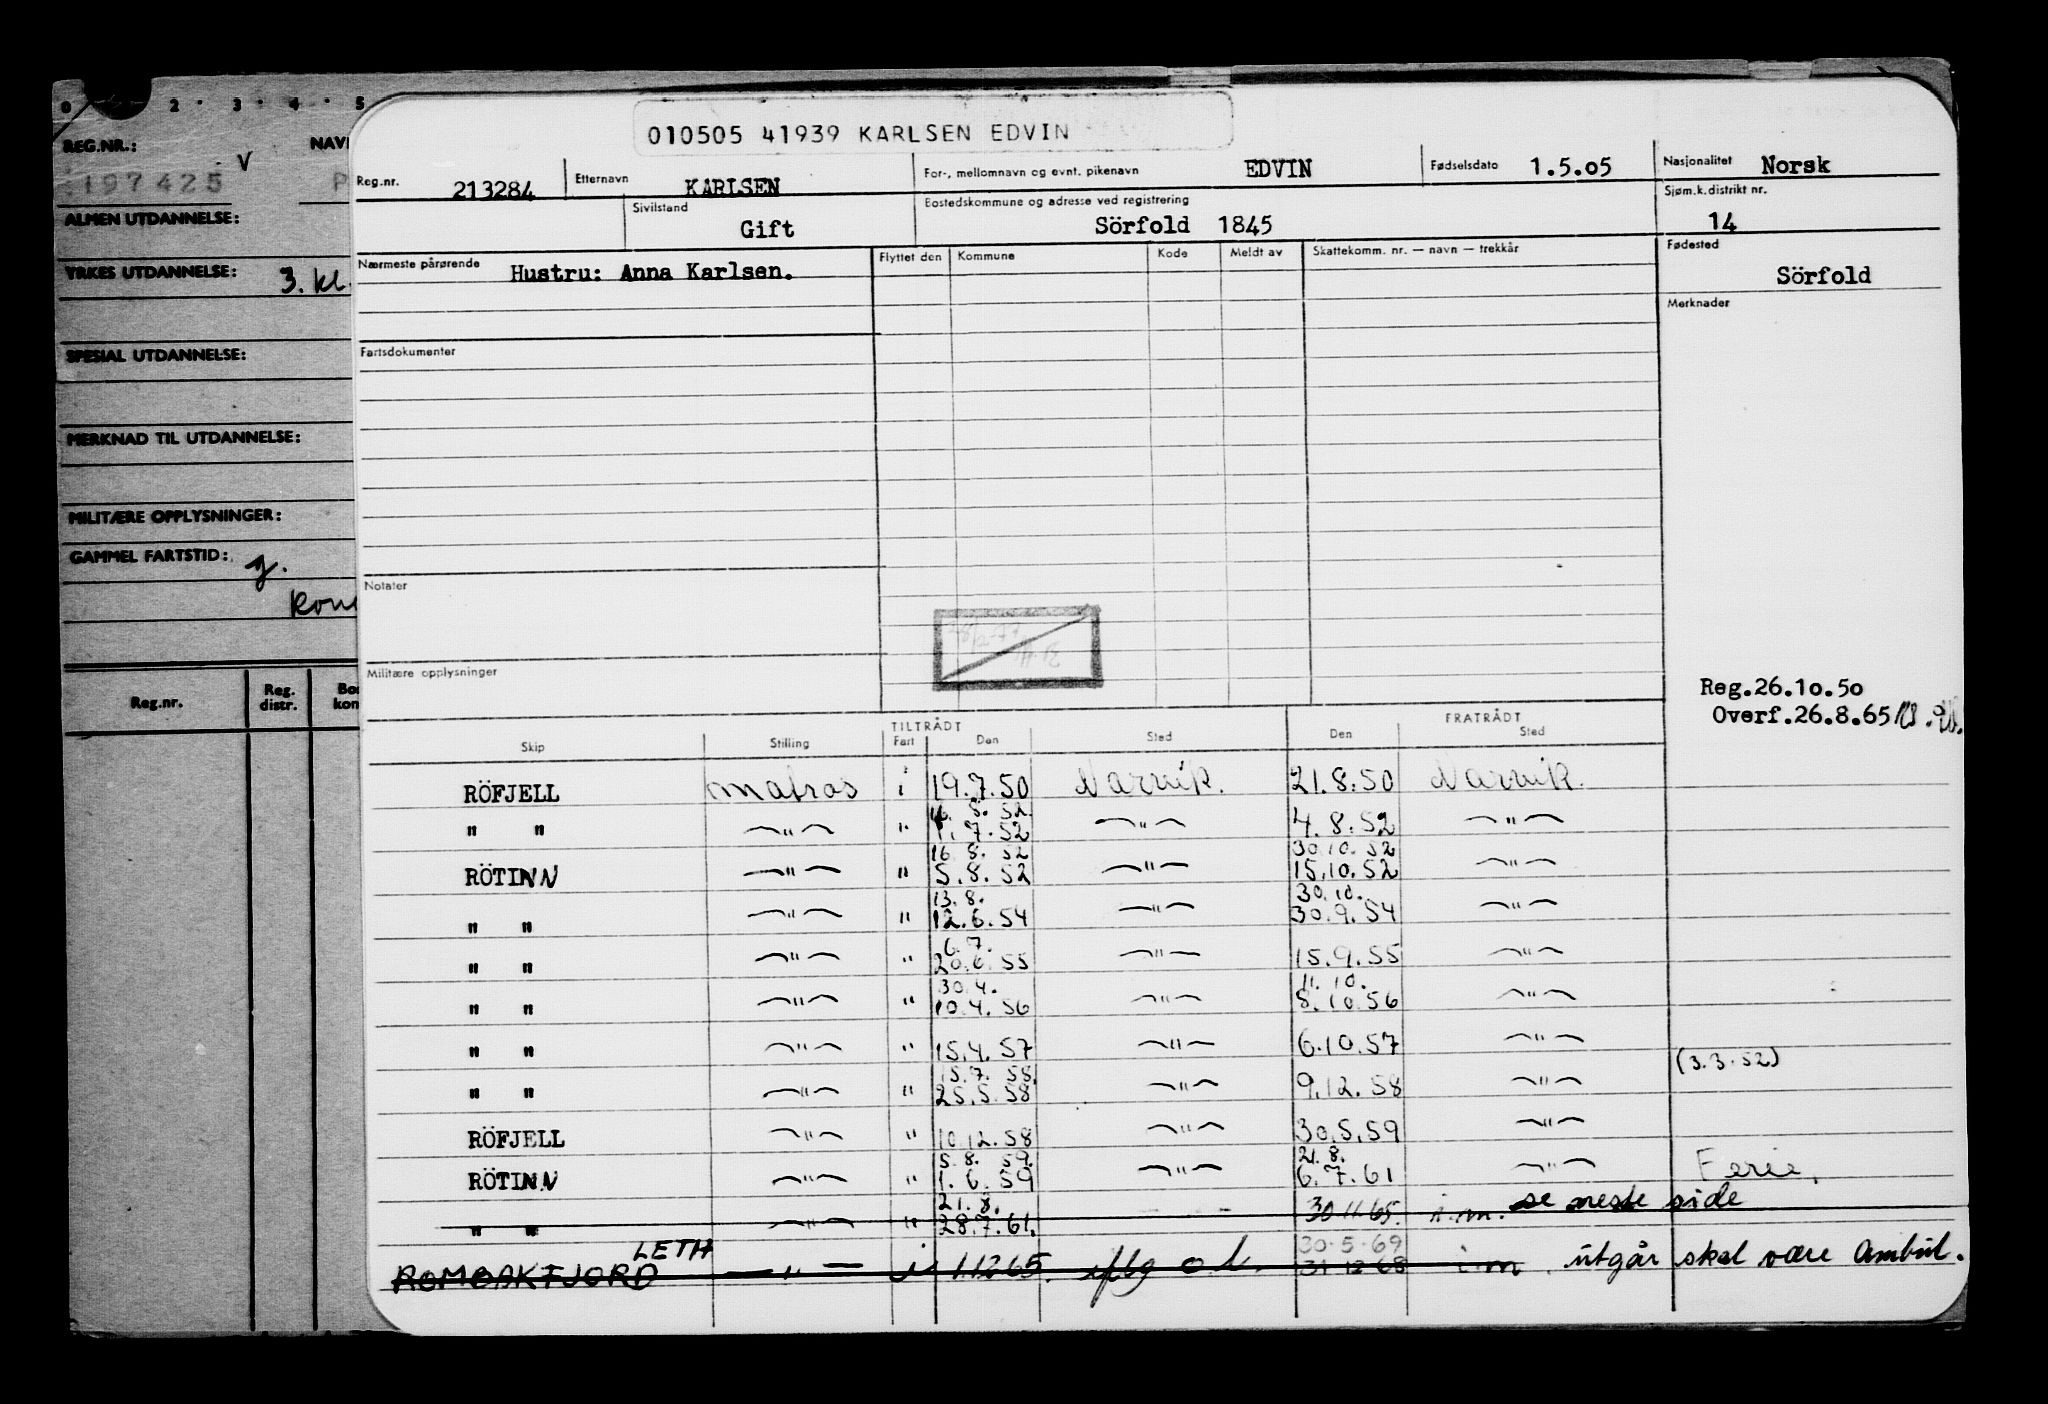 0 2 · 3 · 4 · 5
REG.NR.: V NAVN
197425 P
ALMEN UTDANNELSE:
YRKES UTDANNELSE: 3. kl.
SPESIAL UTDANNELSE:
MERKNAD TIL UTDANNELSE:
MILITÆRE OPPLYSNINGER:
GAMMEL FARTSTID: g.
Reg.nr. Reg. distr. Bo kon
010505 41939 KARLSEN EDVIN
Reg.nr. 213284 Etternavn KARLSEN For-, mellomnavn og evnt. pikenavn EDVIN Fødselsdato 1.5.05 Nasjonalitet Norsk
Sivilstand Gift Bostedskommune og adresse ved registrering Sörfold 1845 Sjøm.k.distrikt nr. 14
Nærmeste pårørende Hustru: Anna Karlsen. Flyttet den Kommune Kode Meldt av Skattekomm. nr. — navn — trekkår Fødested Sörfold
Merknader
Fartsdokumenter
Notater
Militære opplysninger
Reg.26.10.50
Overf.26.8.65
TILTRÅDT FRATRÅDT
Skip Stilling Fart Den Sted Den Sted
RÖFJELL matros i 19.7.50 Narvik. 21.8.50 Narvik.
16. 5. 52
" " —"— " 1.7.52 —"— 4.8.52 —"—
16. 8. 52 30.10.52
RÖTINN —"— " 5.8.52 —"— 15.10.52 —"—
13.8. 30.10.
" " —"— " 12.6.54 —"— 30.9.54 —"—
6.7.
" " —"— " 20.6.55 —"— 15.9.55 —"—
30.4. 11.10.
" " —"— " 10.4.56 —"— 8.10.56 —"—
" " —"— " 15.4.57 —"— 6.10.57 —"— (3.3.52)
15.7.58.
" " —"— " 25.5.58 —"— 9.12.58 —"—
RÖFJELL —"— " 10.12.58 —"— 30.5.59 —"—
5.8.59. 21.8.
RÖTINN —"— " 1.6.59 —"— 6.7.61 —"— Ferie.
21.8.
" " —"— " 28.7.61. 30.11.65. i.m. se neste side
LETH 30.5.69
ROMBAKFJORD —"— i 1.12.65. 31.12.68 i m. utgår skal være Ambul.